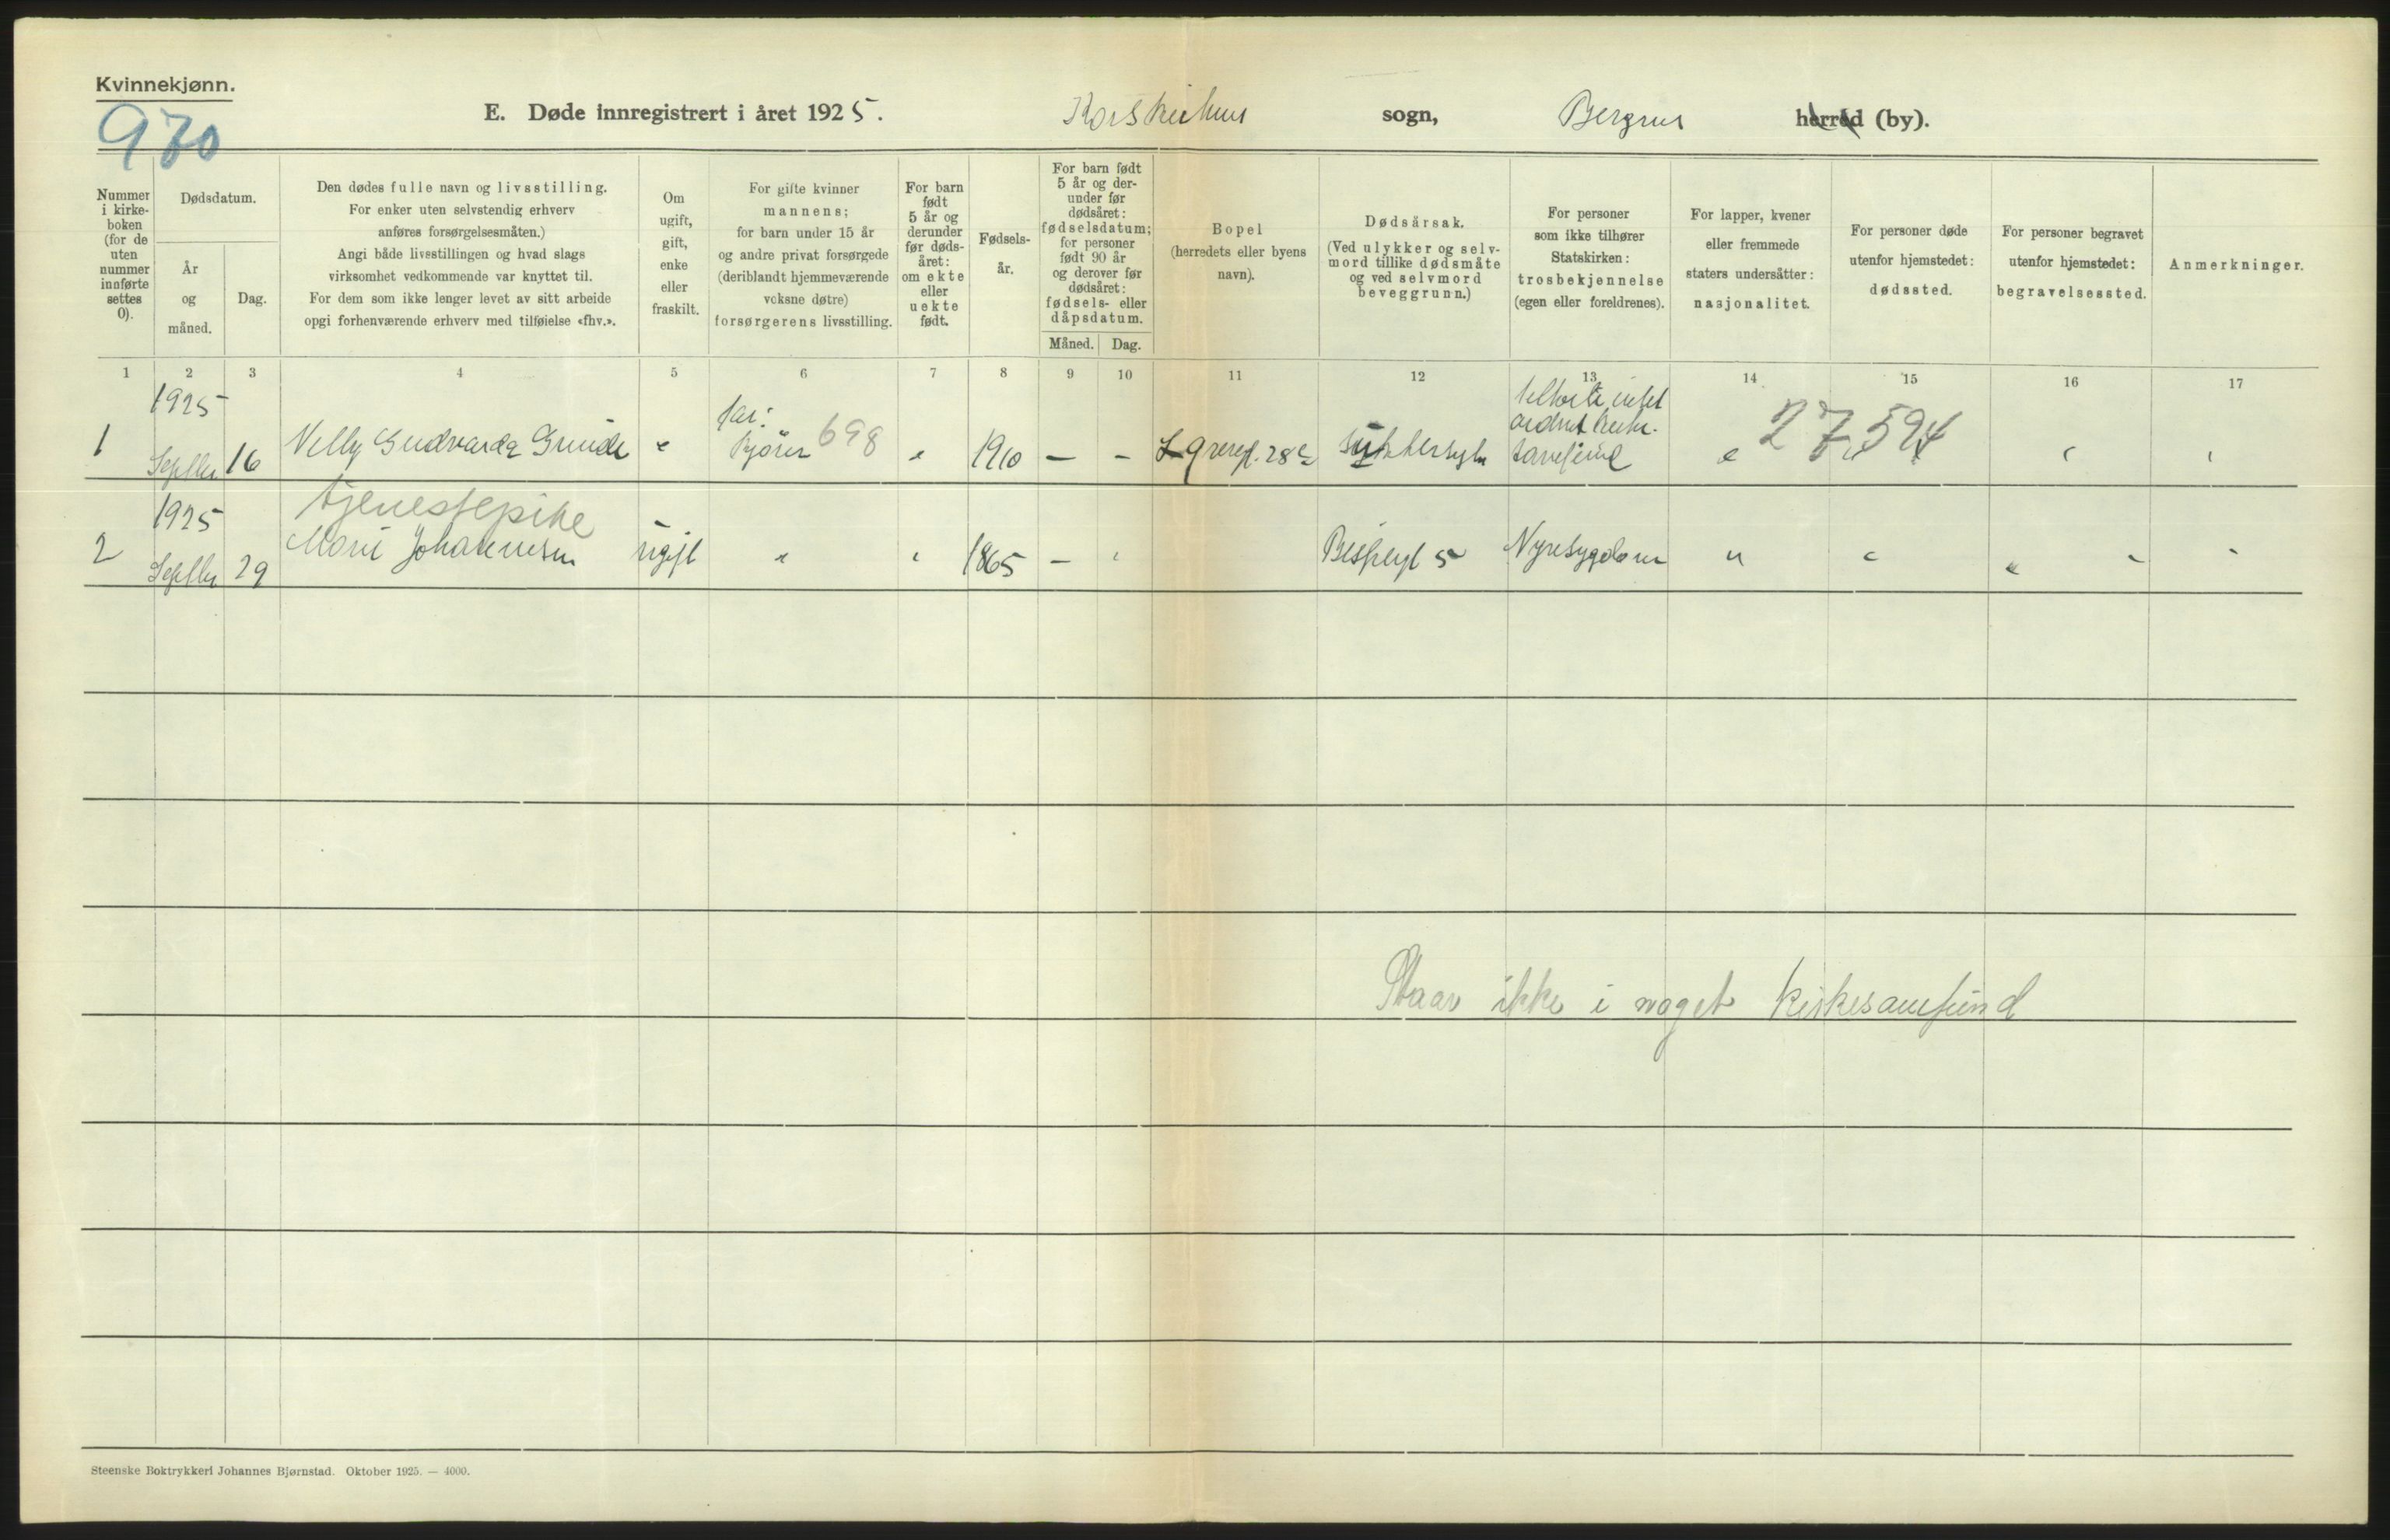 Kvinnekjønn.
970
E. Døde innregistrert i året 1925. Korskirkens sogn, Bergens herred (by).
Nummer i kirkeboken (for de uten nummer innførte settes 0).
Dødsdatum.
År og måned.
Dag.
Den dødes fulle navn og livsstilling.
For enker uten selvstendig erhverv
anføres forsørgelsesmåten.)
Angi både livsstillingen og hvad slags
virksomhet vedkommende var knyttet til.
For dem som ikke lenger levet av sitt arbeide
opgi forhenværende erhverv med tilføielse «fhv.».
Om ugift, gift, enke eller fraskilt.
For gifte kvinner
mannens;
for barn under 15 år
og andre privat forsørgede
(deriblandt hjemmeværende
voksne døtre)
forsørgerens livsstilling.
For barn født 5 år og derunder før dødsåret: om ekte eller uekte født.
Fødselsår.
For barn født 5 år og derunder før dødsåret: fødselsdatum; for personer født 90 år og derover før dødsåret: fødsels- eller dåpsdatum.
Måned. Dag.
Bopel
(herredets eller byens
navn).
Dødsårsak.
(Ved ulykker og selvmord tillike dødsmåte og ved selvmord beveggrunn.)
For personer
som ikke tilhører
Statskirken:
trosbekjennelse
(egen eller foreldrenes).
For lapper, kvener
eller fremmede
staters undersåtter:
nasjonalitet.
For personer døde
utenfor hjemstedet:
dødssted.
For personer begravet
utenfor hjemstedet:
begravelsessted.
Anmerkninger.
1 2 3 4 5 6 7 8 9 10 11 12 13 14 15 16 17
1925
1 Septbr 16 Nelly Gudvarda Grinde " far: 698 " 1910 — — 28 sukkersyke tilhørte intet ordnet kirkesamfund " 27,594 " "
tjenestepike
1925
2 Septbr 29 Marie Johannesen ugift " " 1865 — " 5 Nyresygdom " " " " "
Staar ikke i noget kirkesamfund
Steenske Boktrykkeri Johannes Bjørnstad. Oktober 1925. — 4000.